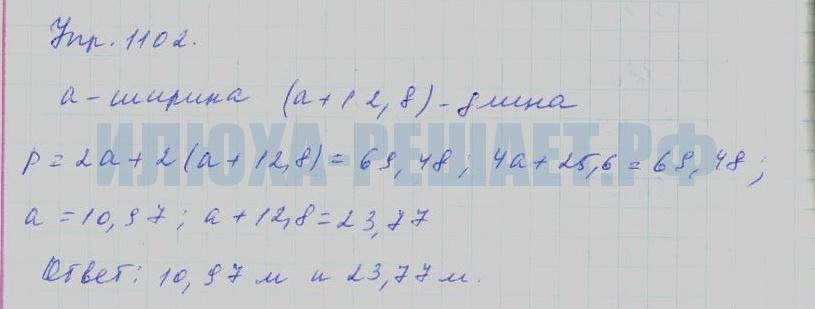 Упр. 1102.
a - ширина (a + 12,8) - длина
ИЛЮХА-РЕШАЕТ.РФ
P = 2a + 2(a + 12,8) = 69,48; 4a + 25,6 = 69,48;
a = 10,97; a + 12,8 = 23,77
Ответ: 10,97 м и 23,77 м.